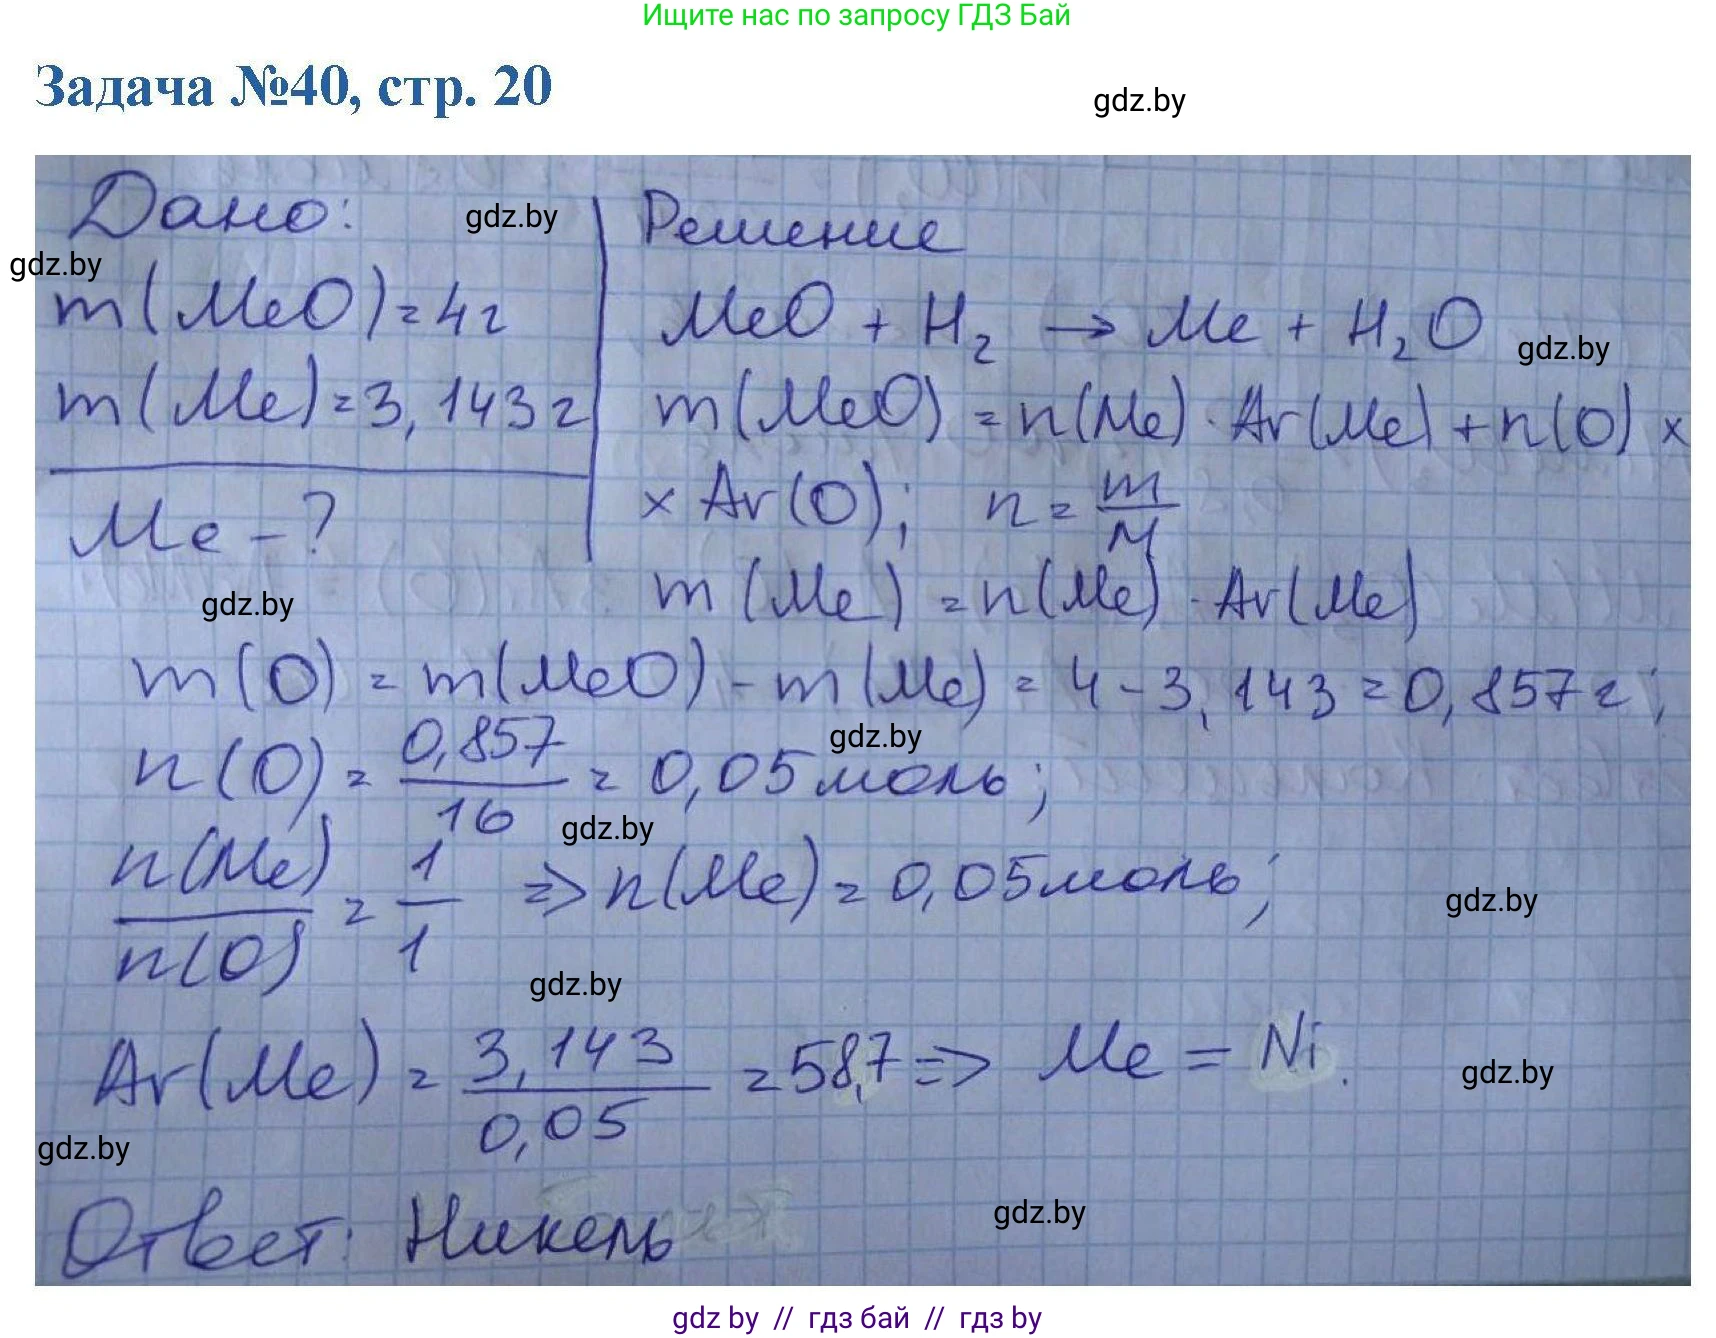 Ищите нас по запросу ГДЗ Бай
Задача №40, стр. 20
gdz.by
Дано:
gdz.by
Решение
gdz.by
m(MeO)=4г
MeO + H₂ → Me + H₂O
gdz.by
m(Me)=3,143г
m(MeO) = n(Me)·Ar(Me)+n(O) ×
× Ar(O); n = m/M
Me - ?
gdz.by
m(Me) = n(Me)·Ar(Me)
m(O) = m(MeO) - m(Me) = 4-3,143=0,857г;
gdz.by
n(O) = 0,857/16 = 0,05моль;
gdz.by
n(Me)/n(O) = 1/1 => n(Me)=0,05моль;
gdz.by
gdz.by
Ar(Me) = 3,143/0,05 = 58,7 => Me = Ni.
gdz.by
gdz.by
Ответ: Никель
gdz.by
gdz by // гдз бай // гдз by